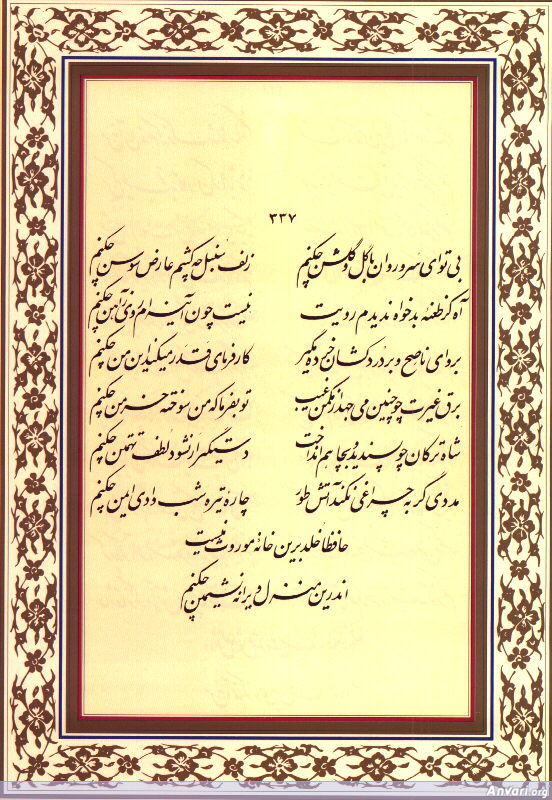 ۳۳۷
بی تو ای سرو روان با گل و گلشن چکنم زلف سنبل چه کشم عارض سوسن چکنم
آه کز طعنه بدخواه ندیدم رویت نیست چون آینه ام روی ز آهن چکنم
برو ای ناصح و بر دردکشان خرده مگیر کارفرمای قدر میکند این من چکنم
برق غیرت چو چنین می جهد از مکمن غیب تو بفرما که من سوخته خرمن چکنم
شاه ترکان چو پسندید و بچاهم انداخت دستگیر ار نشود لطف تهمتن چکنم
مددی گر به چراغی نکند آتش طور چاره تیره شب وادی ایمن چکنم
حافظا خلد برین خانه موروث منست
اندرین منزل ویرانه نشیمن چکنم
Anvari.org